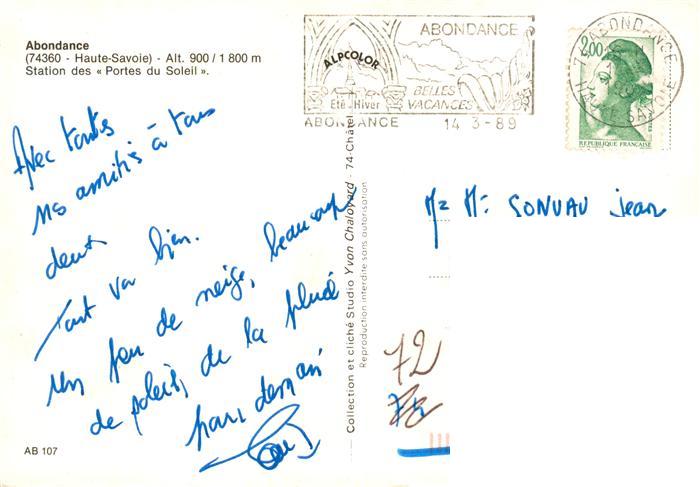 Abondance
(74360 - Haute-Savoie) - Alt. 900 / 1 800 m
Station des « Portes du Soleil ».
ABONDANCE
ALPCOLOR
BELLES
VACANCES
Été Hiver
ABONDANCE 14-3-89
ABONDANCE
SAVOIE
2,00
REPUBLIQUE FRANÇAISE
Avec toutes
nos amitiés à tous
deux
Tout va bien.
Un peu de neige, beaucoup
de soleil, de la pluie
pour demain
Mr Me SONVAU Jean
Collection et cliché Studio Yvon Chaloyard - 74-Châtel
Reproduction interdite sans autorisation
72
AB 107